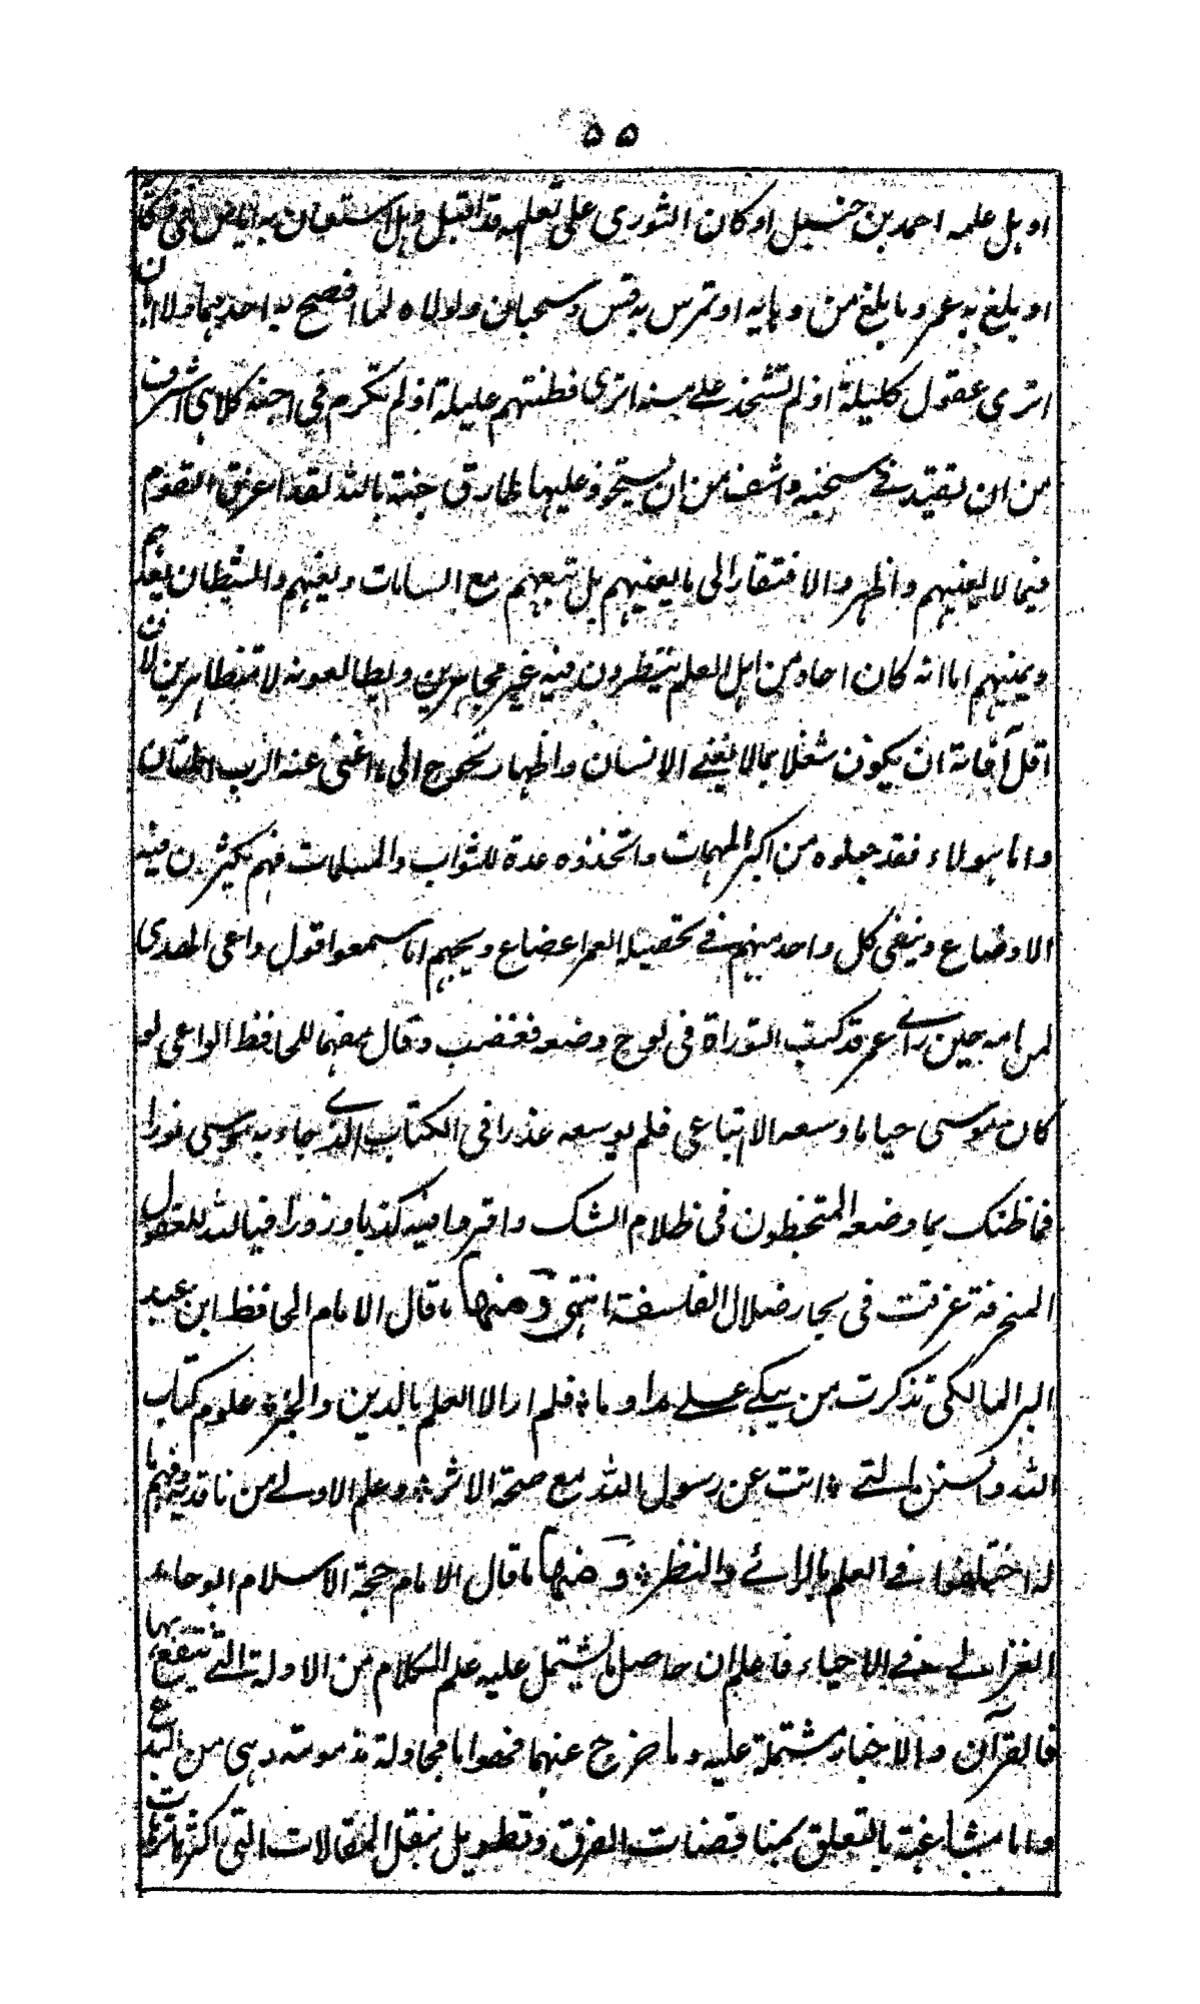 ۵۵
او هل علمه احمد بن حنبل او كان الثوري على تعلمه قد اقبل وهل استعان به اياس في ذكا
ن
او بلغ به عمرو ما بلغ من دهايه او تمرس به قس وسحبان ولولاه لما افصح به احدهما ولا ابا
اترى عقول كليلة اذ لم تشحذ على مسنه اترى فطنتهم عليلة اذ لم تكرم في اجنه كلا هي اشرف
من ان تقيد في سجنه واشف من ان يستحوذ عليها طارق جنة بالله لقد اعرق القوم
فيما لا يعنيهم واظهروا الافتقار الى ما يعنيهم بل يتعبهم مع الساعات ويعنيهم والشيطان يعد
هم
ويمنيهم اما انه كان احاد من اهل العلم ينظرون فيه غير مجاهرين ويطالعونه لا متظاهرين لا
ن
اقل آفاته ان يكون شغلا بما لا يغني الانسان واظهار تحوج الى ما اغنى عنه الرب المنان
واما هولاء فقد جعلوه من اكبر المهمات واتخذوه عدة للثواب والمسلمات فهم يكثرون فيه
الاوضاع وينفى كل واحد منهم في تحصيله العمر اعضاع ويحهم اما سمعوا قول داعي الهدى
لمن امه حين راى عمر قد كتب التوراة في لوح وضعه فغضب وقال معنفا للحافظ الواعى لو
كان موسى حيا ما وسعه الا اتباعي فلم يوسعه عذرا في الكتاب الذي جاء به موسى نورا
فما ظنك بما وضعه المتخبطون في ظلام الشك وافتروا فيه كذبا وزورا فيالله للعقول
المنخرفة غرقت في بحار ضلال الفلسفة انتهى ومنها ما قال الامام الحافظ ابن عبد
البر المالكي تذكرت من يبكي على مداوما ٭ فلم ار الا العلم بالدين والخبر ٭ علوم كتاب
الله والسنن التي ٭ اتت عن رسول الله مع صحة الاثر ٭ وعلم الاولى من ناقديه وفهم ما
له اختلفوا في العلم بالرائ والنظر ٭ ومنها ما قال الامام حجة الاسلام ابو حامد
الغزالي في الاحياء فاعلم ان حاصل ما يشتمل عليه علم الكلام من الادلة التي ينتفع بها
فالقرآن والاخبار مشتملة عليه وما خرج عنهما فهو اما مجادلة مذمومة وهي من البدع
واما مشاغبة بالتعلق بمناقضات الفرق وتطويل بنقل المقالات التي اكثرها ترهات